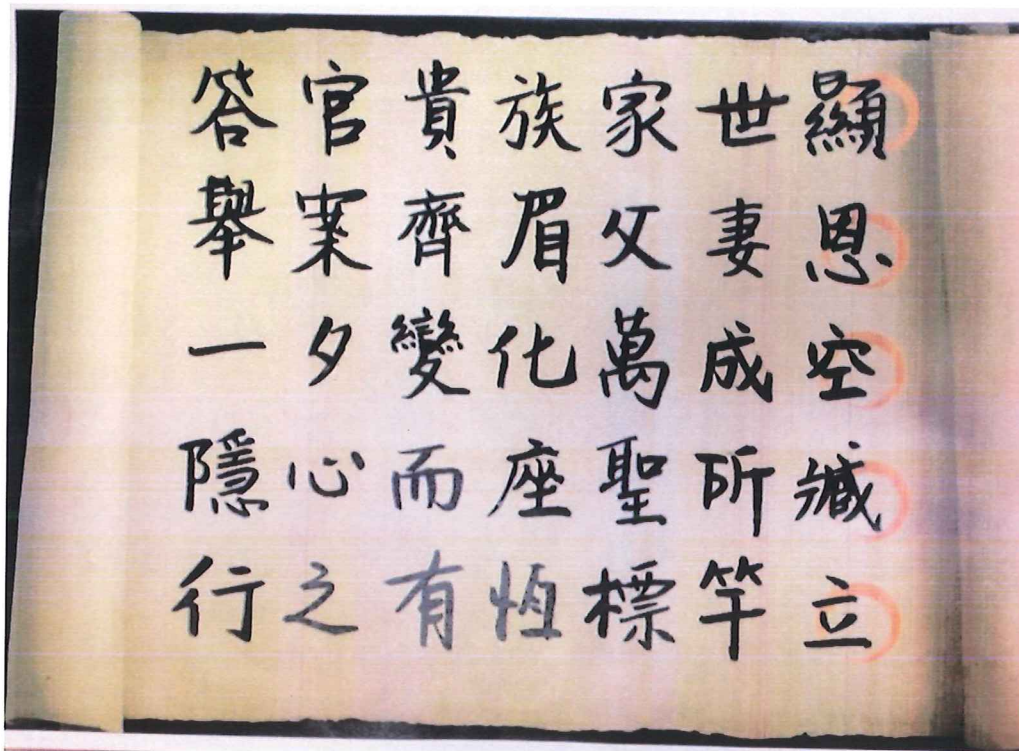 答官貴族家世顯
舉案齊眉父妻恩
一夕變化萬成空
隱心而座聖所臧
行之有恆標竿立